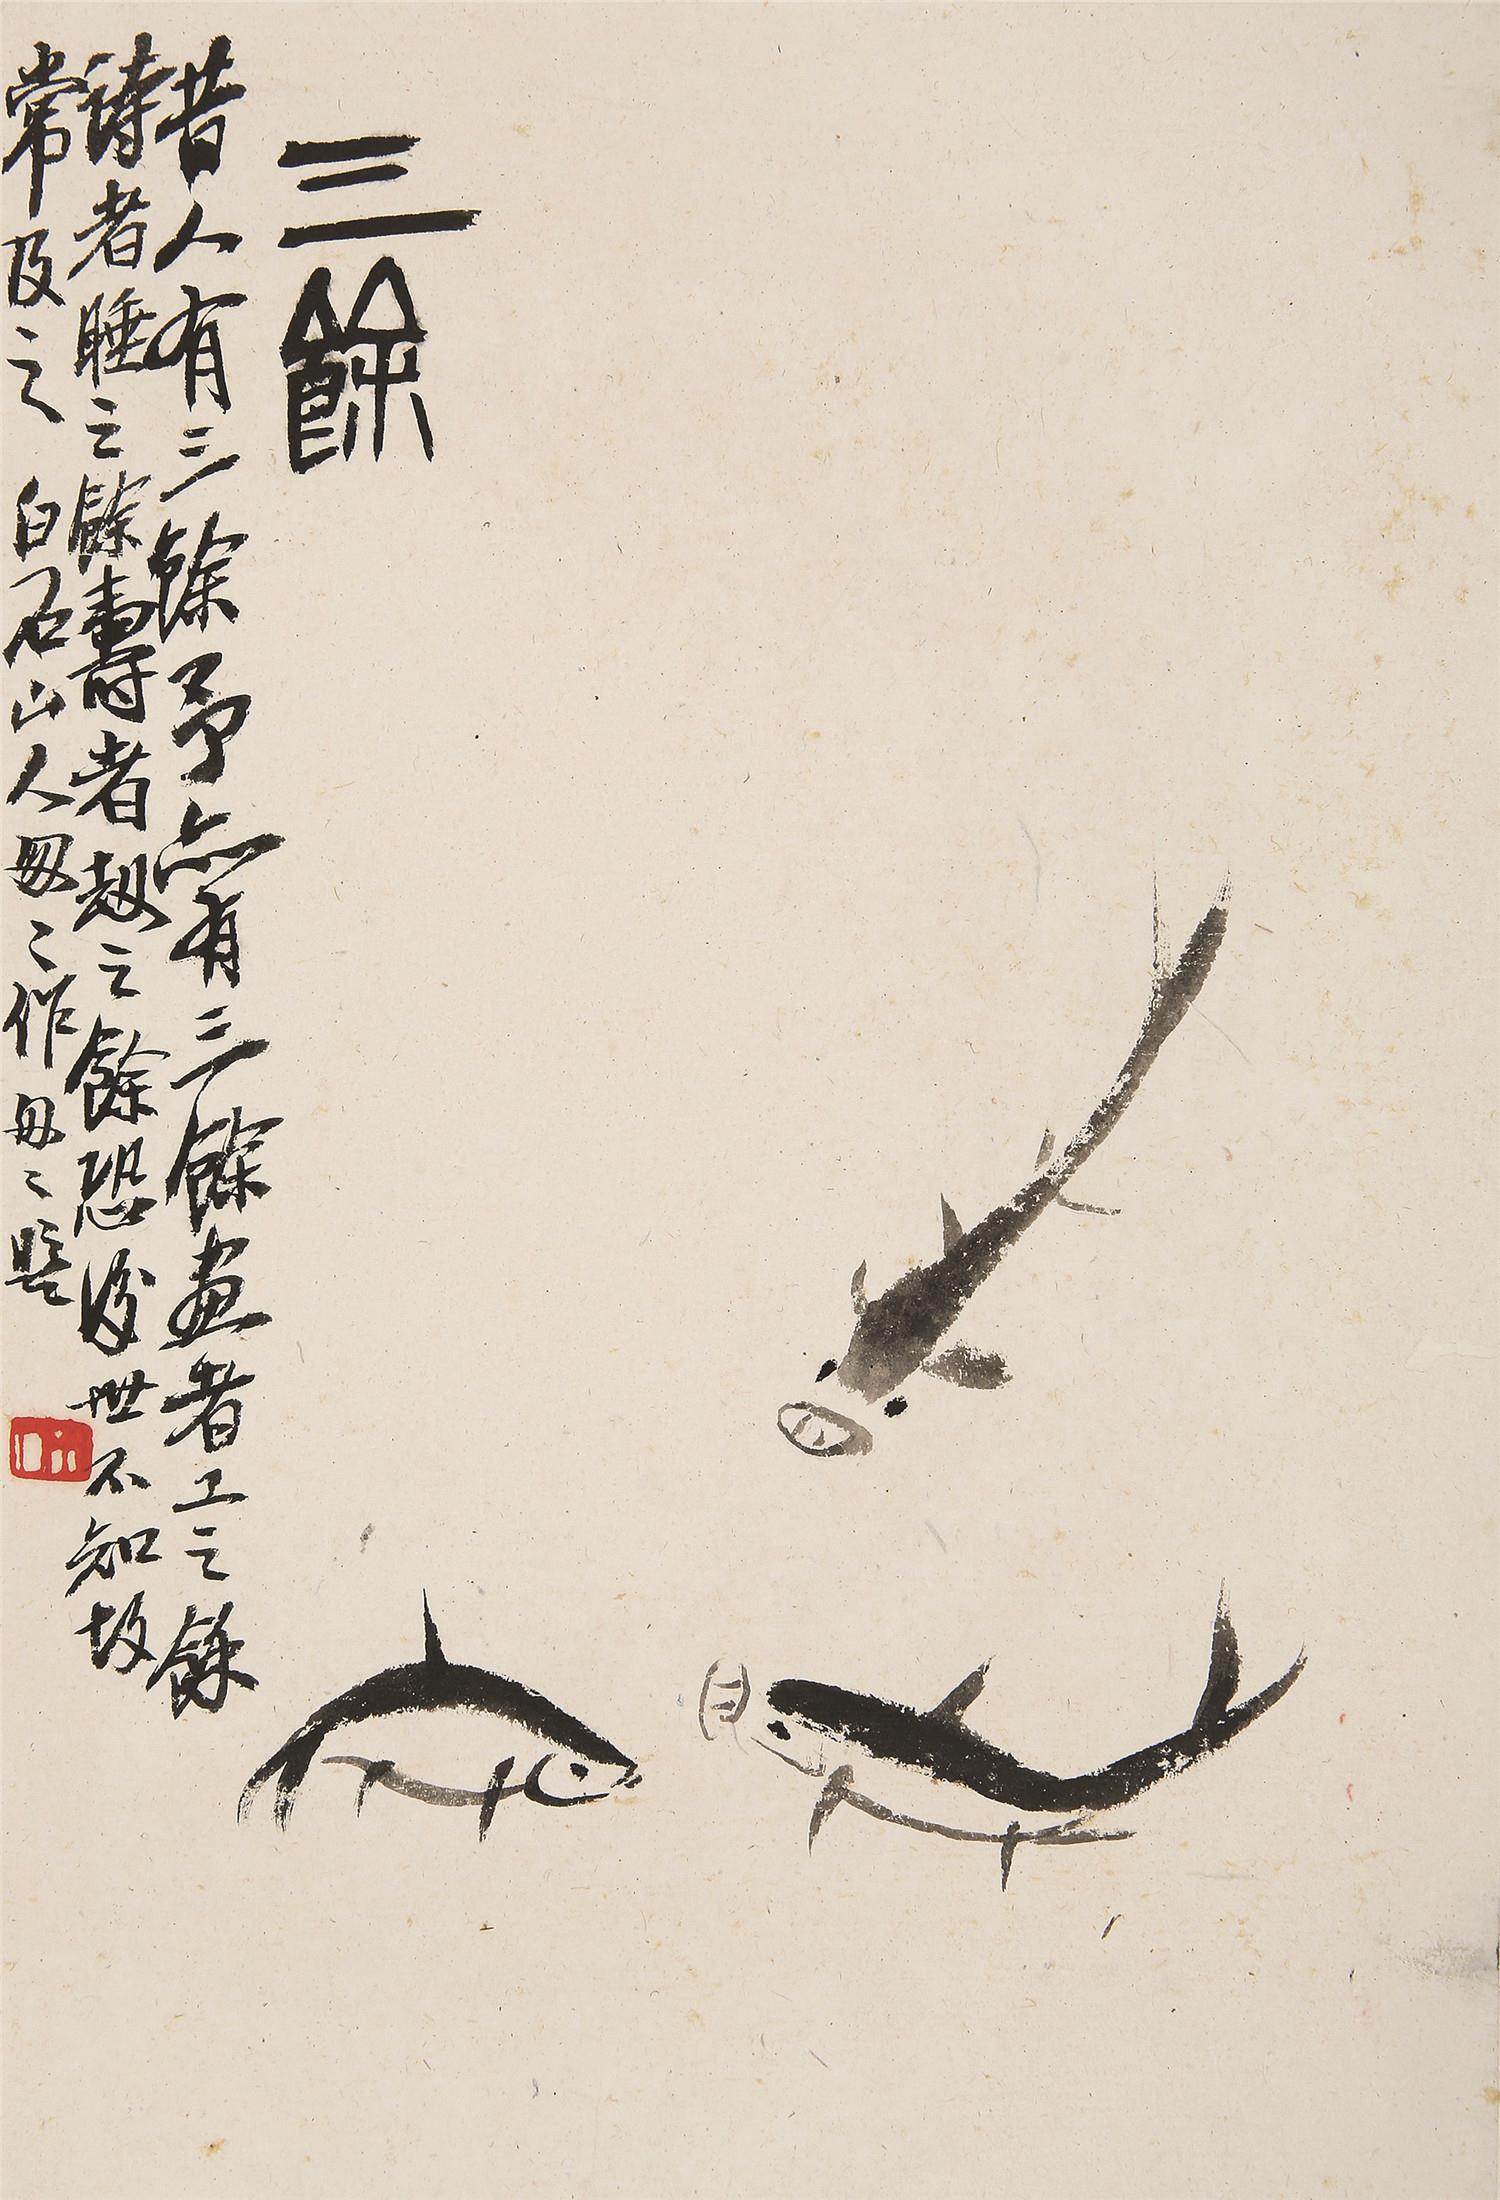 三餘
昔人有三餘予亦有三餘畫者工之餘
詩者睡之餘壽者劫之餘恐後世不知故
常及之 白石山人匆匆作匆匆題